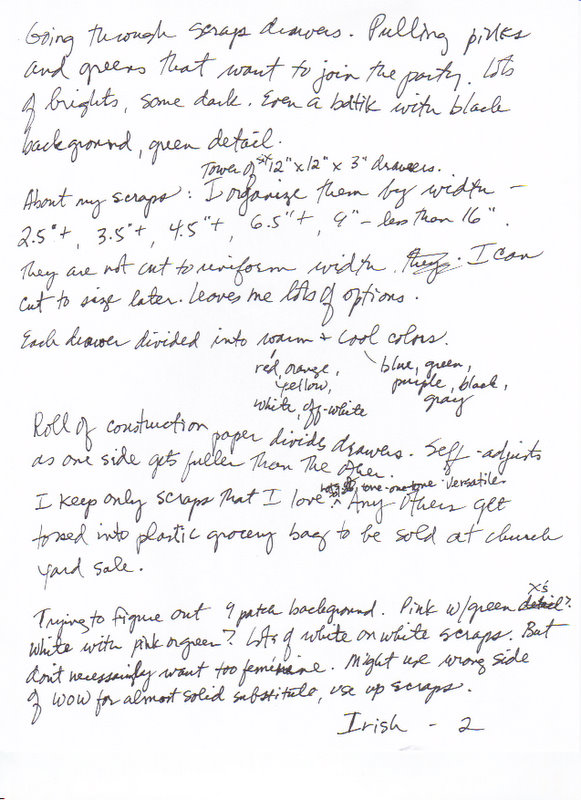 Going through scraps drawers. Pulling pinks
and greens that want to join the party. Lots
of brights, some dark. Even a batik with black
background, green detail.
Tower of six 12" x 12" x 3" drawers.
About my scraps: I organize them by width -
2.5"+, 3.5"+, 4.5"+, 6.5"+, 9" - less than 16".
They are not cut to uniform width. They I can
cut to size later. Leaves me lots of options.
Each drawer divided into warm + cool colors.
red, orange, yellow, white, off-white
blue, green, purple, black, gray
Roll of construction paper divides drawers. Self-adjusts
as one side gets fuller than the other.
I keep only scraps that I love tone-on-tone versatile. Any others get
tossed into plastic grocery bag to be sold at church
yard sale.
Trying to figure out 9 patch background. Pink w/green detail X's?
White with pink or green? Lots of white on white scraps. But
don't necessarily want too feminine. Might use wrong side
of WOW for almost solid substitute, use up scraps.
Irish - 2